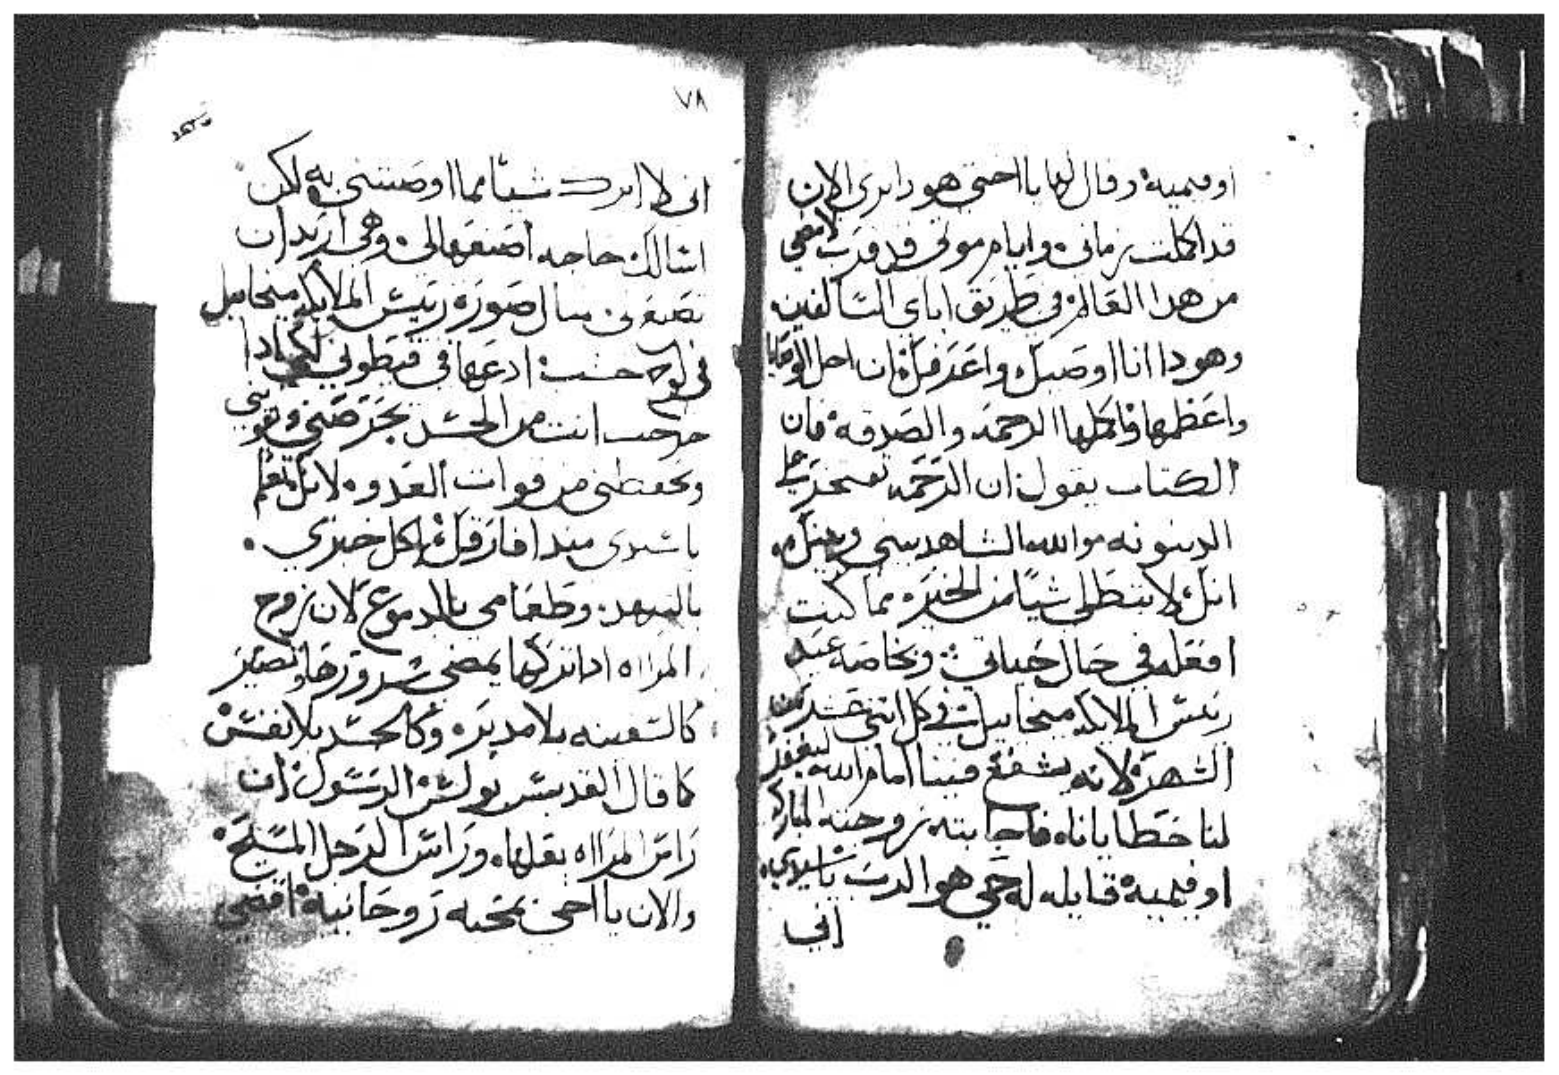 اوفيمية وقال لها يا اختي هودا ترى الان
قد اكملت زماني وايام موتي قد قربت لامضي
من هدا العالم في طريق اباي السالفين
وهودا انا اوصيك واعرفك ان اجل الوصايا
واعظمها واكملها الرحمة والصدقة فان
الكتاب يقول ان الرحمة تفتخر على
الدينونة والله الشاهد بيني وبينك
انك لا تبطلي شيا من الخير مما كنت
افعله في حال حياتي وبخاصة عيد
رييس الملايكة ميخاييل في كل اثني عشر من
الشهر لانه يشفع فينا امام الله ليغفر
لنا خطايانا فاجابته زوجته المباركة
اوفيمية قايله له حي هو الرب يا سيدي
اني
٧٨
اني لا اترك شيا مما اوصيتني به لكن
اسالك حاجه اصنعها لي وهي اريد ان
تصنع لي متال صورة رييس الملايكه ميخاييل
في لوح خشب ادعها في قيطوني لكيما ادا
خرجت انت من الجسد يحرصني ويقويني
ويحفظني من قوات العدو لانك تعلم
يا سيدي مند افارقك اكل خبزي
بالتنهد وطعامي بالدموع لان زوج
المراه ادا تركها يمضي سرورها وتصير
كالسفينه بلا مدبر وكالجسد بلا نفس
كما قال القديس بولس الرسول ان
راس المراه بعلها وراس الرجل المسيح
والان يا اخي محبه روحانية اقضي